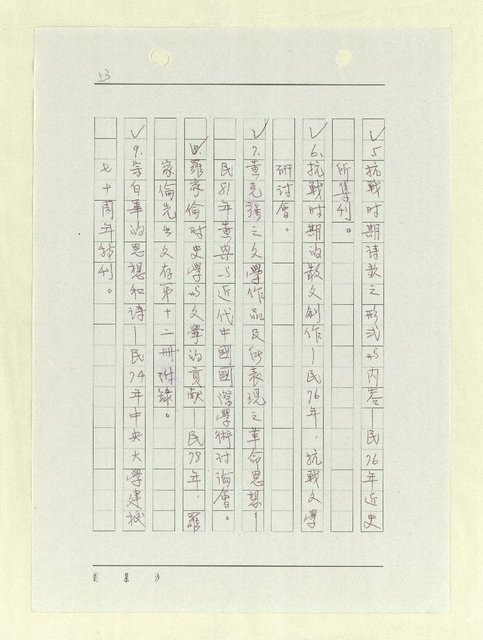 53
✓5.抗戰时期诗歌之形式与内容—民76年近史
所集刊。
✓6.抗戰时期的散文創作—民76年.抗戰文學
研討會。
✓7.黃克強之文學作品及所表現之革命思想—
民81年黃興与近代中國國際學術討論會。
✓8.羅家倫对史學与文學的貢献—民78年.羅
家倫先生文存第十二冊附錄。
✓9.宗白華的思想和诗—民74年中央大學建校
七十周年特刊。